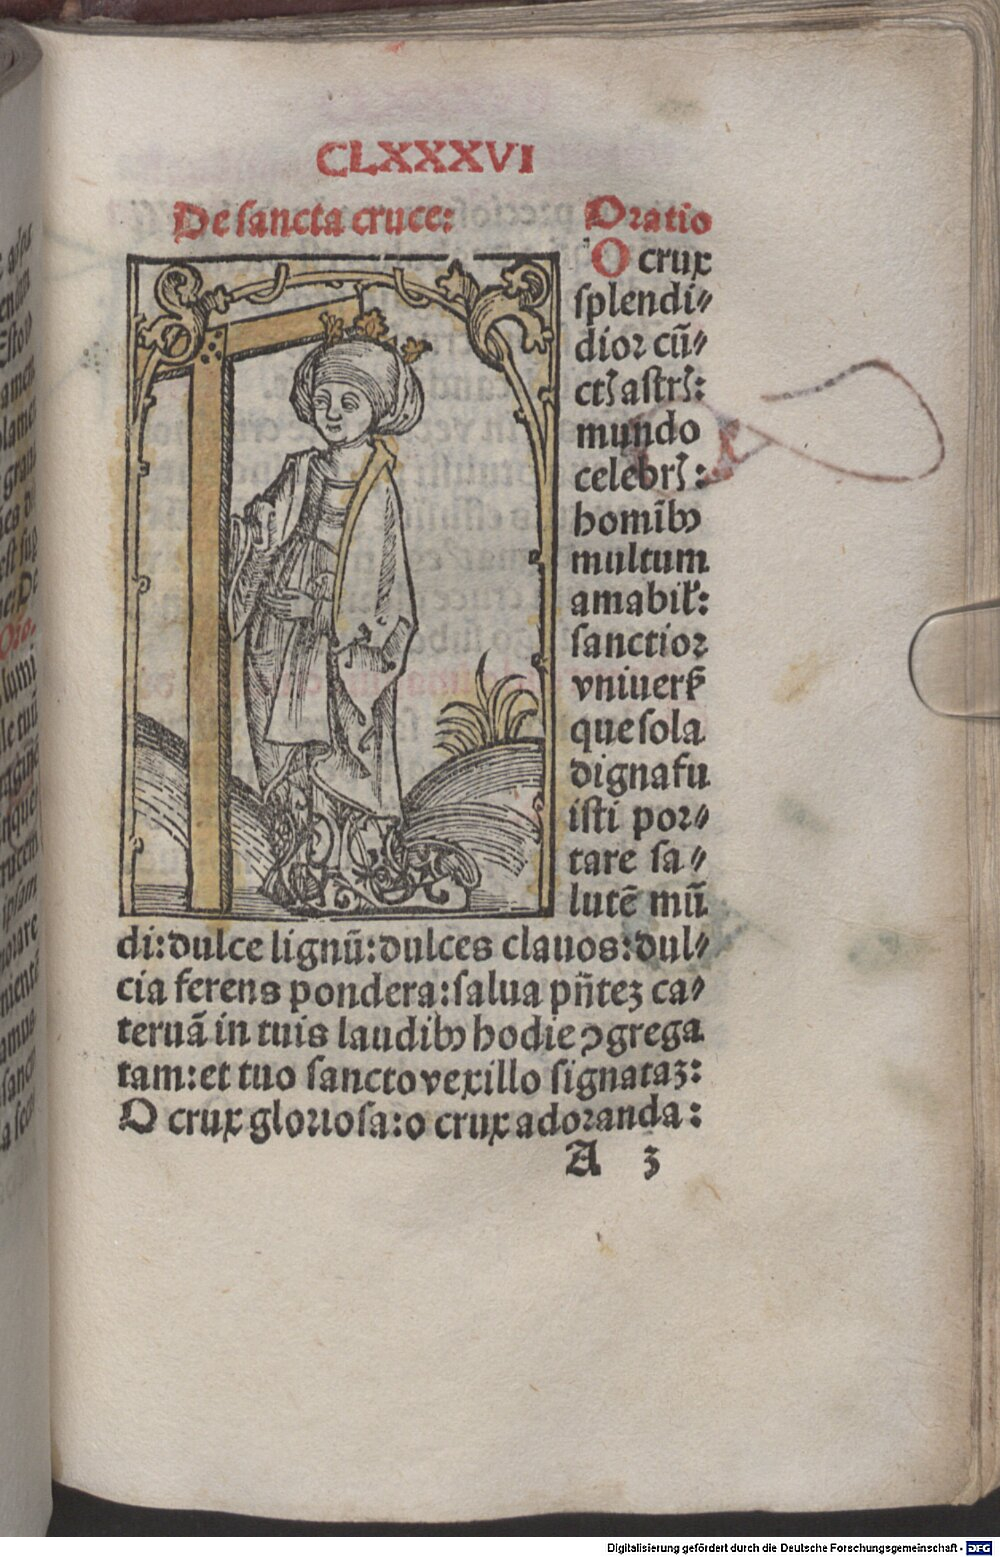 CLXXXVI
De sancta cruce:
Oratio
O crux
splendi⸗
dior cū⸗
ctꝭ astrꝭ:
mundo
celebrꝭ:
homībꝰ
multum
amabil':
sanctior
vniuersꝭ
que sola
digna fu
isti por⸗
tare sa⸗
lutē mū
di: dulce lignū: dulces clauos: dul⸗
cia ferens pondera: salua pn̄tez ca⸗
teruā in tuis laudibꝰ hodie ꝯgrega
tam: et tuo sancto vexillo signataz:
O crux gloriosa: o crux adoranda:
A 3
Digitalisierung gefördert durch die Deutsche Forschungsgemeinschaft - DFG